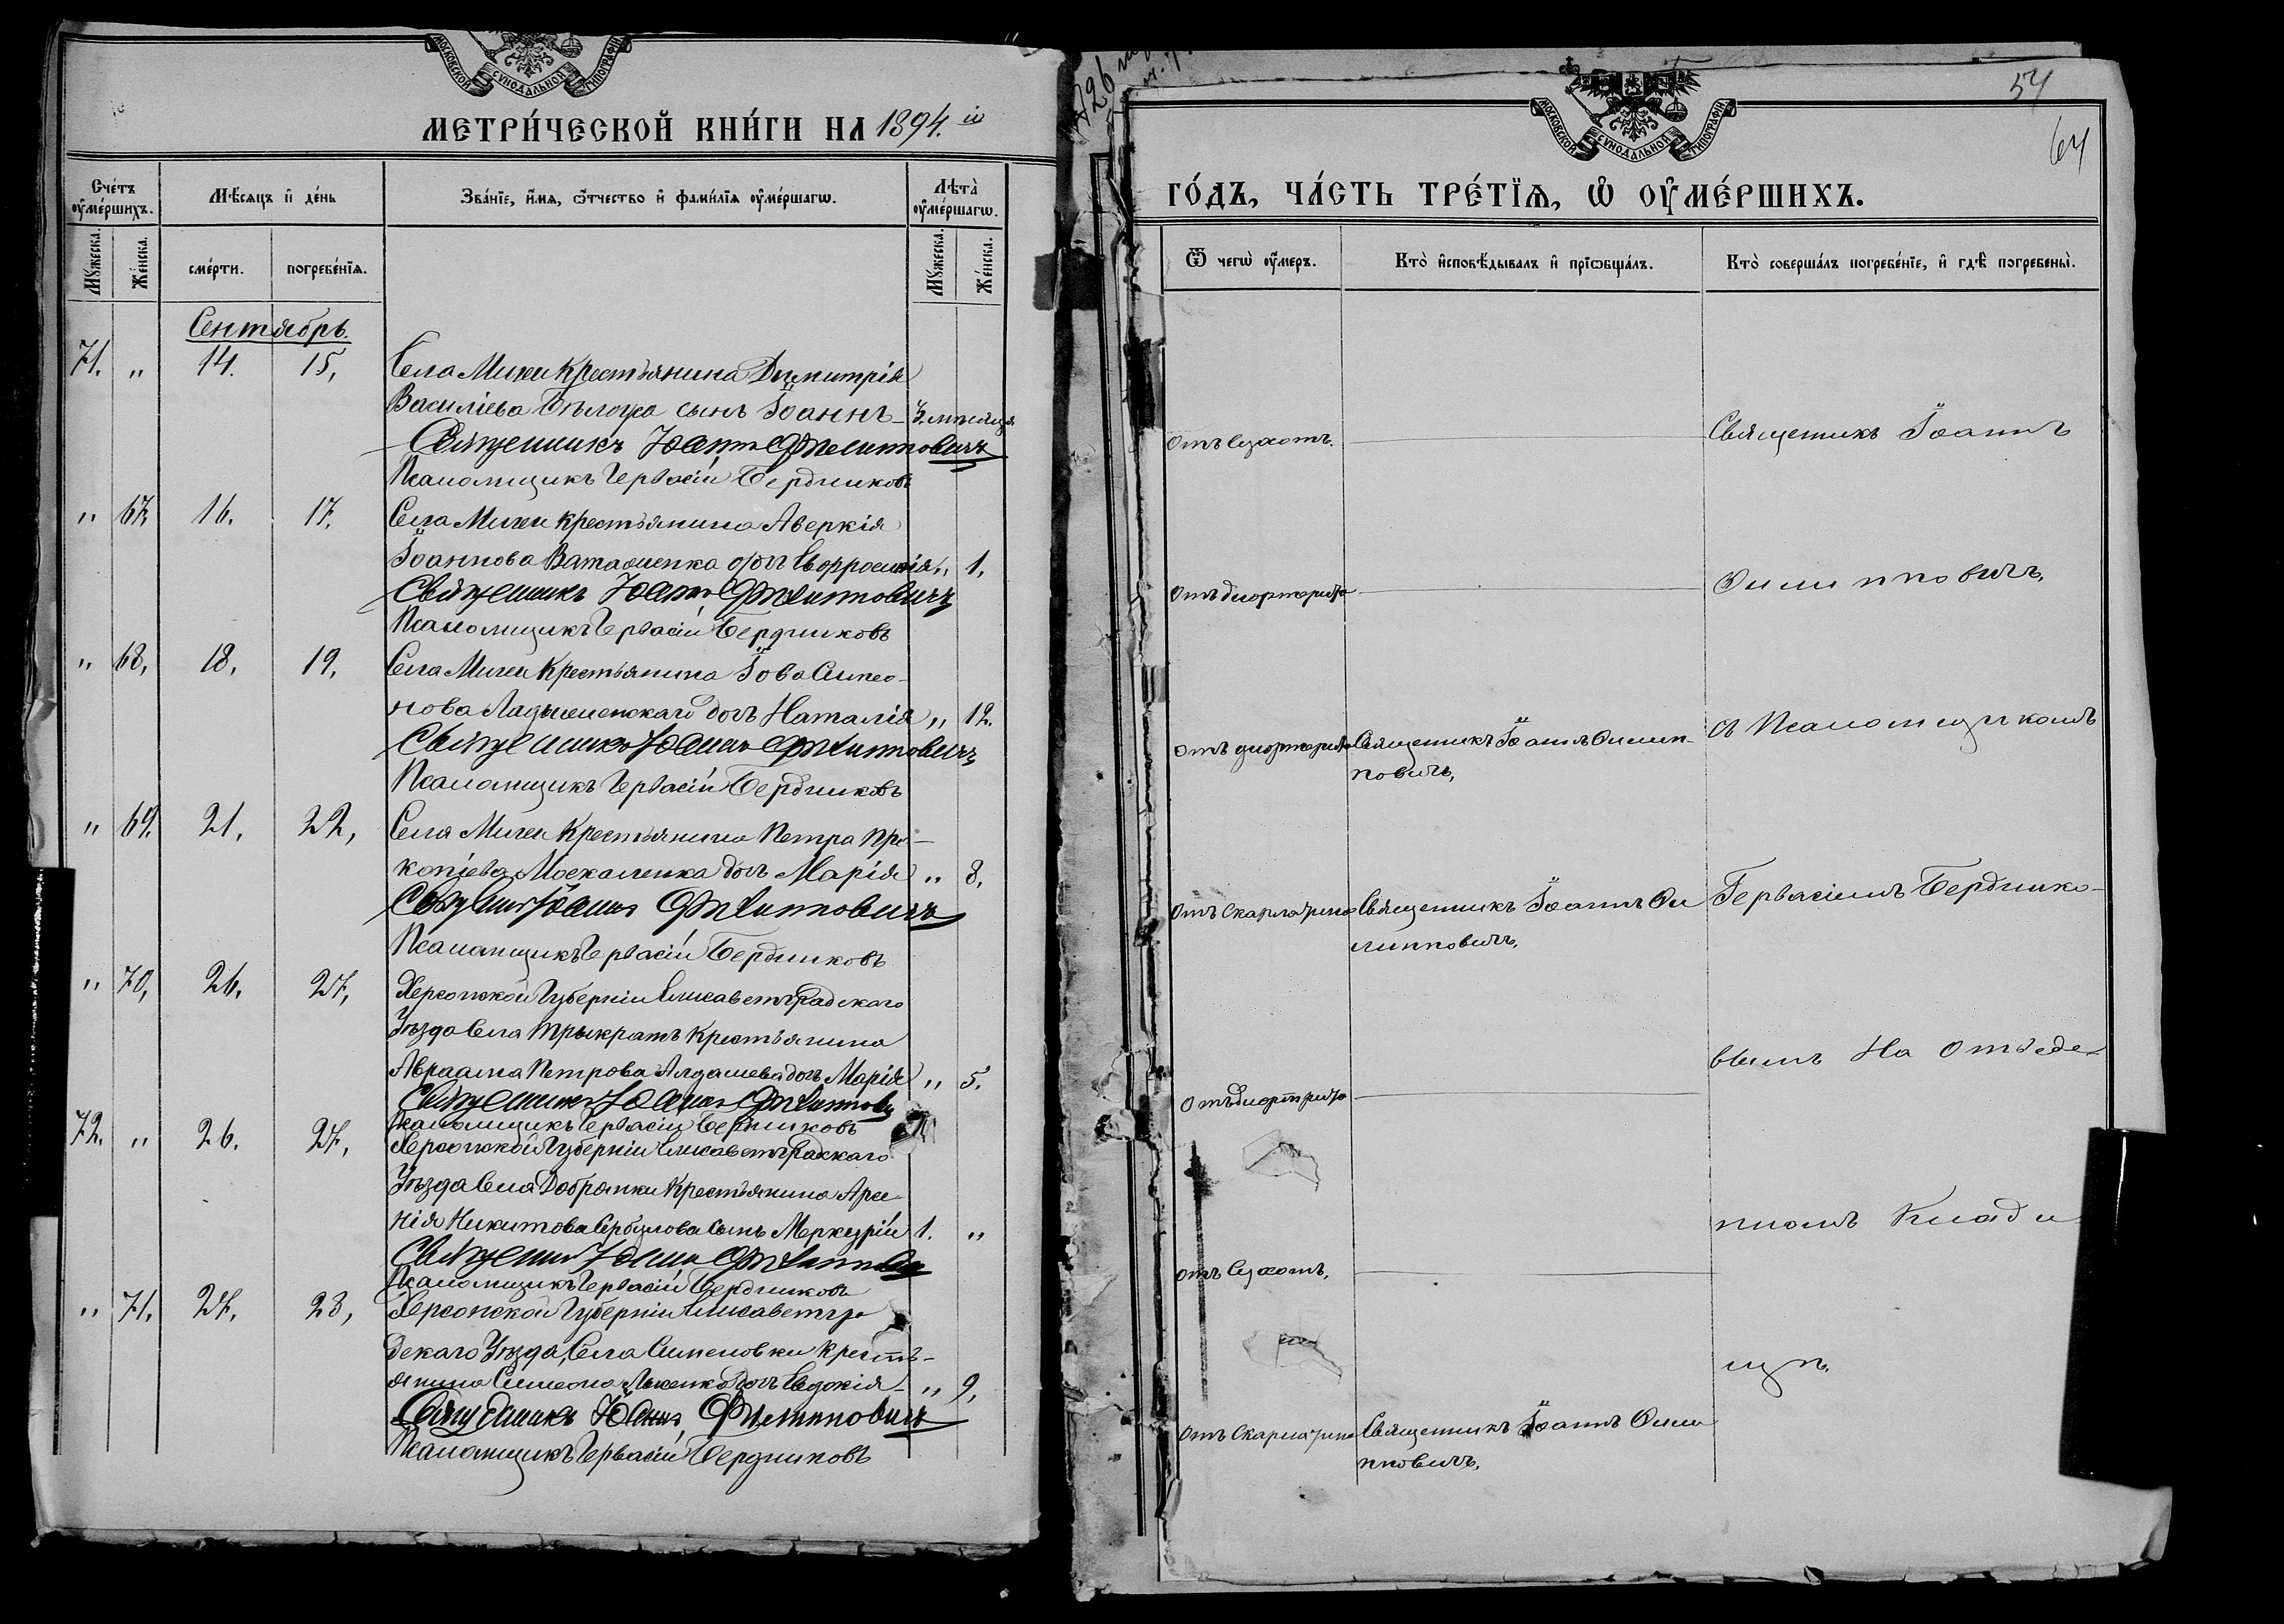 МОСКОВСКОЙ СѴНОДАЛЬНОЙ ТИПОГРАФІИ
МЕТРИ́ЧЕСКОЙ КНИ́ГИ НА 1894. й
Сче́тъ оу҆ме́ршихъ.
Мѣ́сяцъ и҆ де́нь
Зва́нїе, и҆́мя, ѻ҆́тчество и҆ фами́лїя оу҆ме́ршагѡ.
Лѣ́та оу҆ме́ршагѡ.
Мꙋ́жеска.
Же́нска.
сме́рти.
погребе́нїя.
Мꙋ́жеска.
Же́нска.
Сентябрь.
71. " 14. 15,
Села Мигеи Крестьянина Димитрія
Василіева Бѣлоуса сынъ Іоаннъ 3. мѣсяца
Священникъ Іоаннъ Филипповичъ
Псаломщикъ Гервасій Бердниковъ
" 67, 16. 17,
Села Мигеи Крестьянина Аверкія
Іоаннова Ваташенка дочь Евфросинія " 1,
Священникъ Іоаннъ Филипповичъ
Псаломщикъ Гервасій Бердниковъ
" 68, 18, 19,
Села Мигеи Крестьянина Іова Симео-
нова Ладыженскаго дочь Наталія " 12.
Священникъ Іоаннъ Филипповичъ
Псаломщикъ Гервасій Бердниковъ
" 69, 21, 22,
Села Мигеи Крестьянина Петра Про-
копіева Москаленка дочь Марія " 8,
Священникъ Іоаннъ Филипповичъ
Псаломщикъ Гервасій Бердниковъ
" 70, 26, 27,
Херсонской Губерніи Елисаветградскаго
Уѣзда Села Трыкратъ Крестьянина
Авраама Петрова Алдашева дочь Марія " 5.
Священникъ Іоаннъ Филиппов
Псаломщикъ Гервасій Бердниковъ
72. " 26. 27,
Херсонской Губерніи Елисаветградскаго
Уѣзда Села Добрянки Крестьянина Арсе
нія Никитова Сербулова сынъ Меркурій 1. "
Священникъ Іоаннъ Филиппов
Псаломщикъ Гервасій Бердниковъ
" 71. 27. 28,
Херсонской Губерніи Елисаветгра
дскаго Уѣзда, Села Симеоновки Кресть-
янина Симеона дочь Евдокія " 9,
Священникъ Іоаннъ Филипповичъ
Псаломщикъ Гервасій Бердниковъ
МОСКОВСКОЙ СѴНОДАЛЬНОЙ ТИПОГРАФІИ
54
64
ГО́ДЪ, ЧА́СТЬ ТРЕ́ТЇЯ, Ѡ҆ ОУ҆МЕ́РШИХЪ.
Ѿ чегѡ̀ оу҆́меръ.
Кто̀ и҆сповѣ́дывалъ и҆ прїѡбща́лъ.
Кто̀ соверша́лъ погребе́нїе, и҆ гдѣ̀ погребены̀.
Отъ Сухотъ.
Священникъ Іоаннъ
Отъ дифтерита
Филипповичъ,
Отъ дифтерита Священникъ Іоаннъ Филип-
повичъ,
съ Псаломщикомъ
Отъ Скарлатины Священникъ Іоаннъ Фи
липповичъ,
Гервасіемъ Берднико-
Отъ дифтерита
вымъ На Отведе-
Отъ Сухотъ,
нномъ Кладби
щѣ.
Отъ Скарлатины Священникъ Іоаннъ Фили
пповичъ,